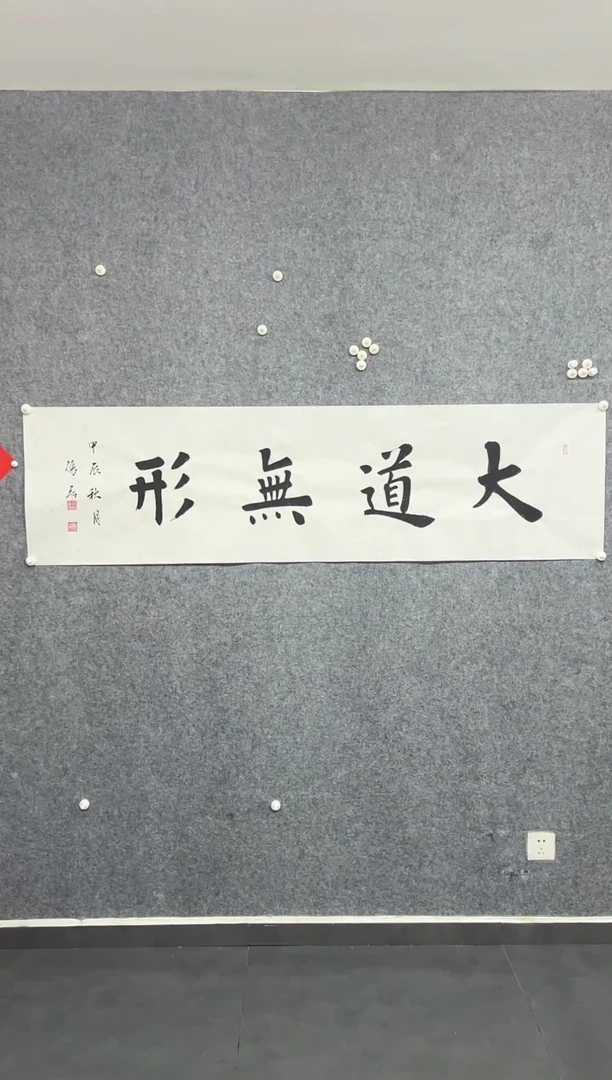 大道無形
甲辰秋月